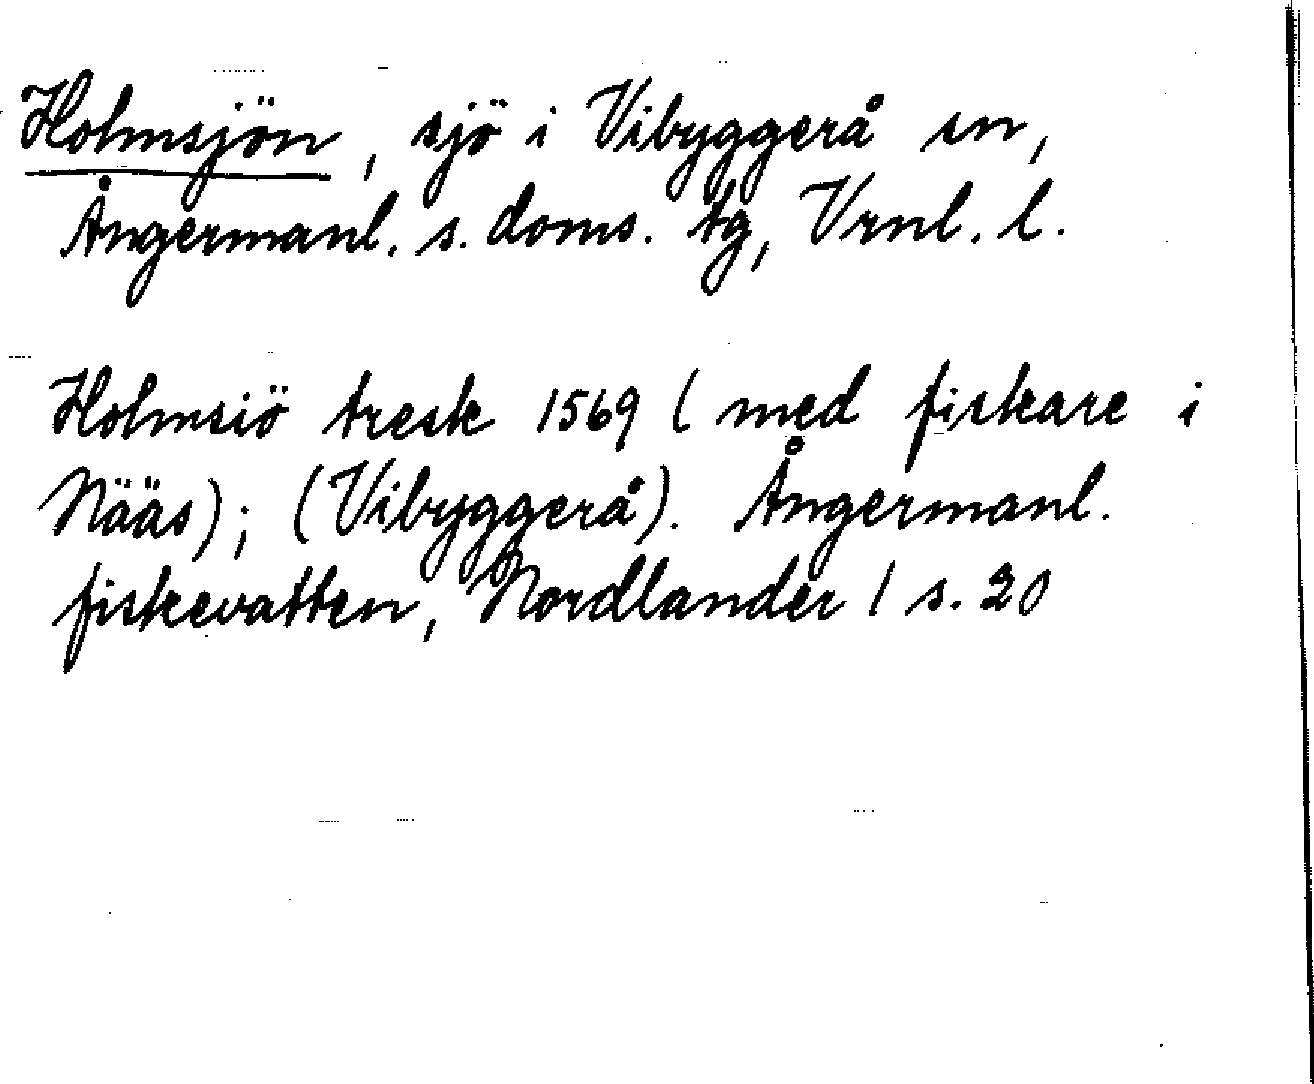 Holmsjön, sjö i Vibyggerå sn,
Ångermanl. s. doms. tg, Vrnl. l.
Holmsiö tresk 1569 (med fiskare i
Nääs); (Vibyggerå). Ångermanl.
fiskevatten, Nordlander / s. 20